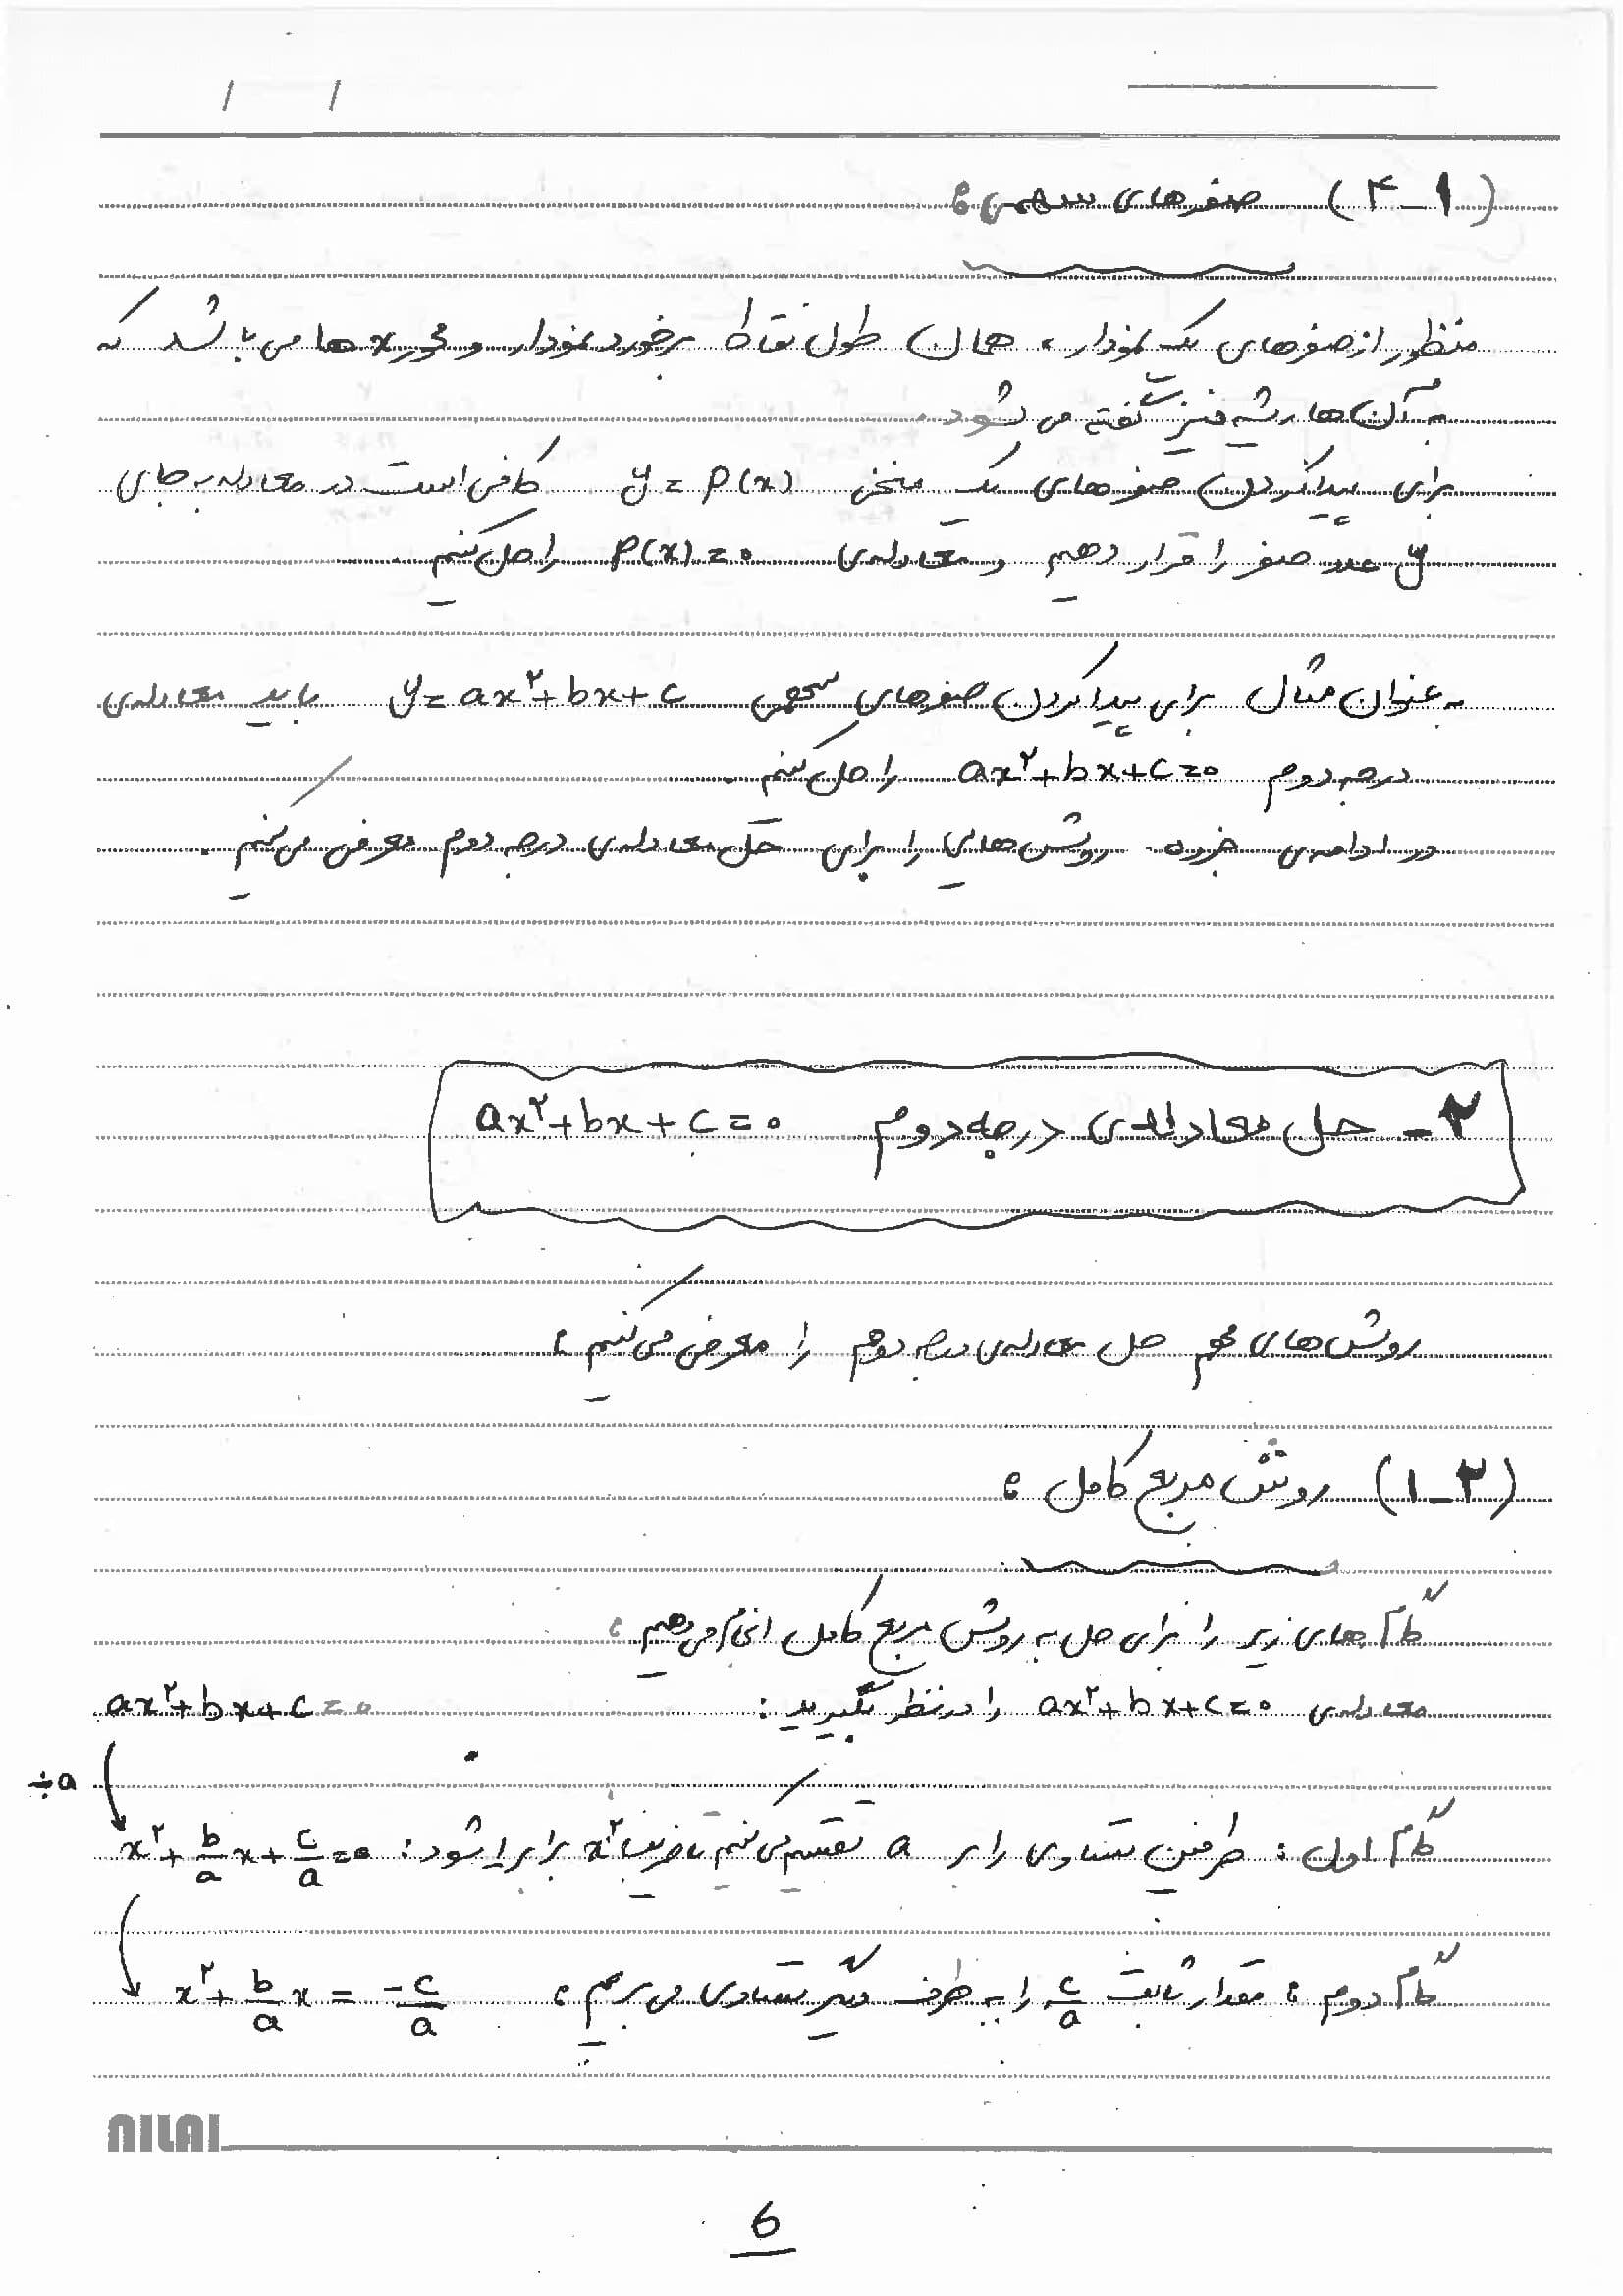 / /
(۱-۴) صفرهای سهمی :
منظور از صفرهای یک نمودار ، همان طول نقاط برخورد نمودار و محور x ها می باشد که
به آن ها ریشه نیز گفته می شود .
برای پیدا کردن صفرهای یک منحنی y = P(x) کافی است در معادله به جای
y عدد صفر را قرار دهیم و معادله ی P(x) = ۰ را حل کنیم .
به عنوان مثال برای پیدا کردن صفرهای سهمی y = ax² + bx + c باید معادله ی
درجه دوم ax² + bx + c = ۰ را حل کنیم .
در ادامه ی جزوه روش هایی را برای حل معادله ی درجه دوم معرفی می کنیم .
۲- حل معادله ی درجه دوم ax² + bx + c = ۰
روش های مهم حل معادله ی درجه دوم را معرفی می کنیم :
(۱-۲) روش مربع کامل :
گام های زیر را برای حل به روش مربع کامل انجام می دهیم :
معادله ی ax² + bx + c = ۰ را در نظر بگیرید : ax² + bx + c = ۰
÷a
گام اول : طرفین تساوی را بر a تقسیم می کنیم تا ضریب x² برابر ۱ شود : x² + b/a x + c/a = ۰
گام دوم : مقدار ثابت c/a را به طرف دیگر تساوی می بریم : x² + b/a x = -c/a
NILAI
6